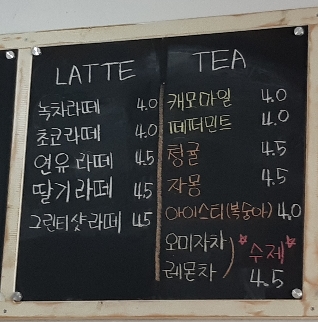 LATTE
녹차라떼 4.0
초코라떼 4.0
연유라떼 4.5
딸기라떼 4.5
그린티샷라떼 4.5
TEA
캐모마일 4.0
페퍼민트 4.0
청귤 4.5
자몽 4.5
아이스티(복숭아) 4.0
오미자차
레몬차
*수제*
4.5